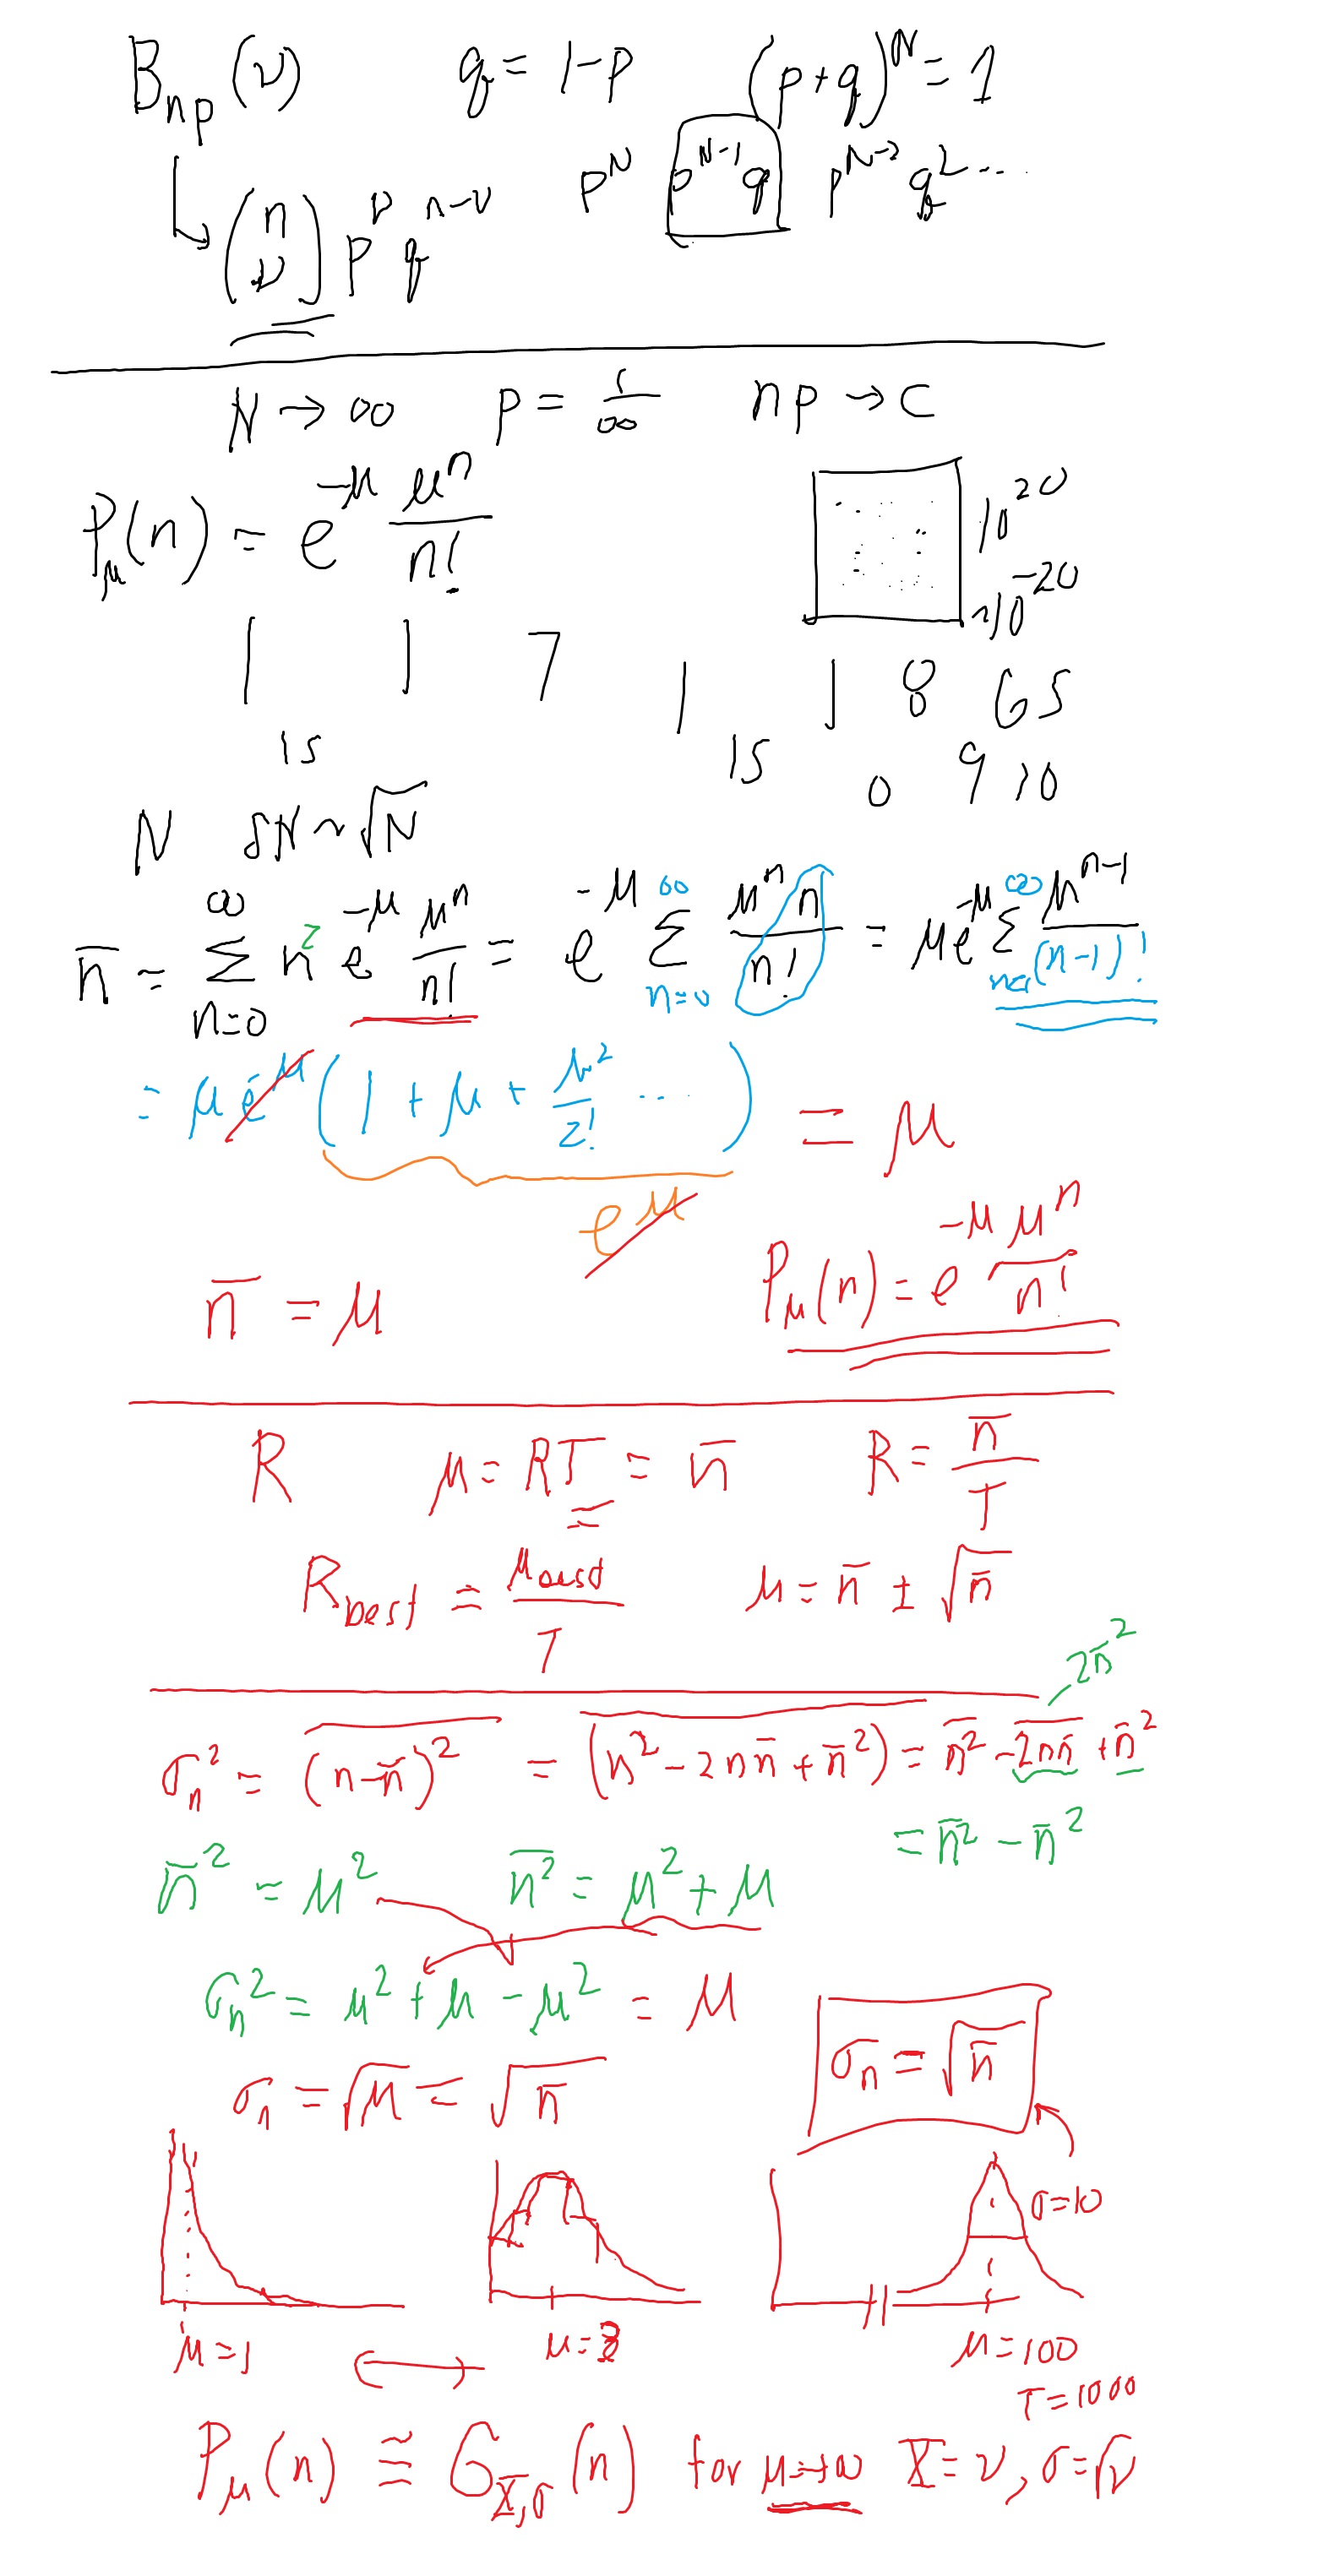 B_np(ν) q = 1-p (p+q)^N = 1
↳ (n ν) p^ν q^(n-ν) p^N p^(N-1) q p^(N-2) q^2 ...
N → ∞ p = 1/∞ np → c
P_μ(n) = e^(-μ) μ^n/n! 10^20
~10^-20
1 1 7 1 1 8 6 5
1s 1s 0 9 10
N δN ~ √N
n̄ = Σ_(n=0)^∞ n^2 e^(-μ) μ^n/n! = e^(-μ) Σ_(n=0)^∞ μ^n n/n! = μe^(-μ) Σ^∞ μ^(n-1)/(n-1)!
= μe^(-μ) (1 + μ + μ^2/2! ...) = μ
e^μ
n̄ = μ P_μ(n) = e^(-μ) μ^n/n!
R μ = RT = n̄ R = n̄/T
R_best = μ/T μ = n̄ ± √n̄
2n̄^2
σ_n^2 = \overline{(n-n̄)^2} = \overline{(n^2 - 2nn̄ + n̄^2)} = \overline{n^2} - \overline{2nn̄} + n̄^2
= \overline{n^2} - n̄^2
n̄^2 = μ^2 \overline{n^2} = μ^2 + μ
σ_n^2 = μ^2 + μ - μ^2 = μ
σ_n = √n̄
σ_n = √μ = √n̄
σ=10
μ=1 μ=3 μ=100
T=1000
P_μ(n) ≅ G_X̄,σ(n) for μ→∞ X̄=ν, σ=√ν